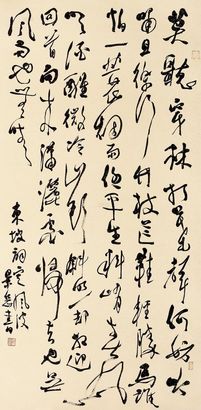 莫聽穿林打葉聲何妨吟
嘯且徐行竹杖芒鞋輕勝馬誰
怕一蓑煙雨任平生料峭春風
吹酒醒微冷山頭斜照却相迎
回首向來蕭瑟處歸去也無
風雨也無晴
東坡詞定風波